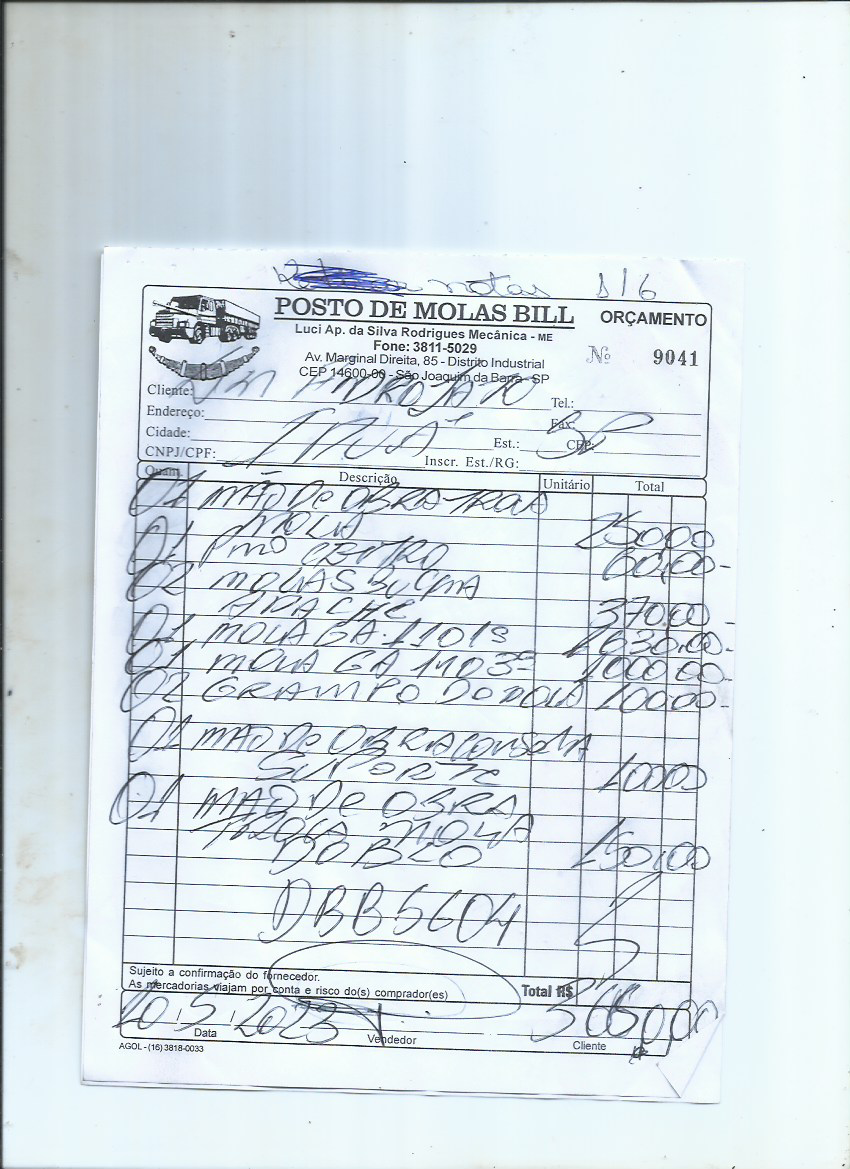 notas 1/6
POSTO DE MOLAS BILL
ORÇAMENTO
Luci Ap. da Silva Rodrigues Mecânica - ME
Fone: 3811-5029
Nº 9041
Av. Marginal Direita, 85 - Distrito Industrial
CEP 14600-00 - São Joaquim da Barra - SP
Cliente: HIDROJATO Tel.:
Endereço: Fax:
Cidade: Est.: SP CEP:
CNPJ/CPF: Inscr. Est./RG:
Quant. Descrição Unitário Total
01 MÃO DE OBRA TROCA
MOLA 250,00
01 Pino CENTRO 60,00-
02 MOLAS
370,00-
01 MOLA GA 110 1ª 1630,00-
01 MOLA GA 110 3ª 1000,00-
02 GRAMPO DO MOLA 100,00-
01 MÃO De OBRA
SUPORTE 100,00
01 MÃO De OBRA
TROCA MOLA
150,00
DBB5604
Sujeito a confirmação do fornecedor.
As mercadorias viajam por conta e risco do(s) comprador(es)
Total R$
20, 5, 2023 3660,00
Data Vendedor Cliente
AGOL - (16) 3818-0033